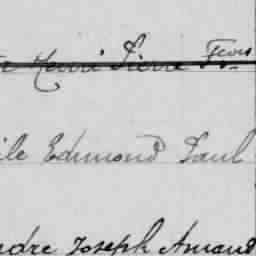 Henri Pierre
ile Edmond Paul
ndre Joseph Amand